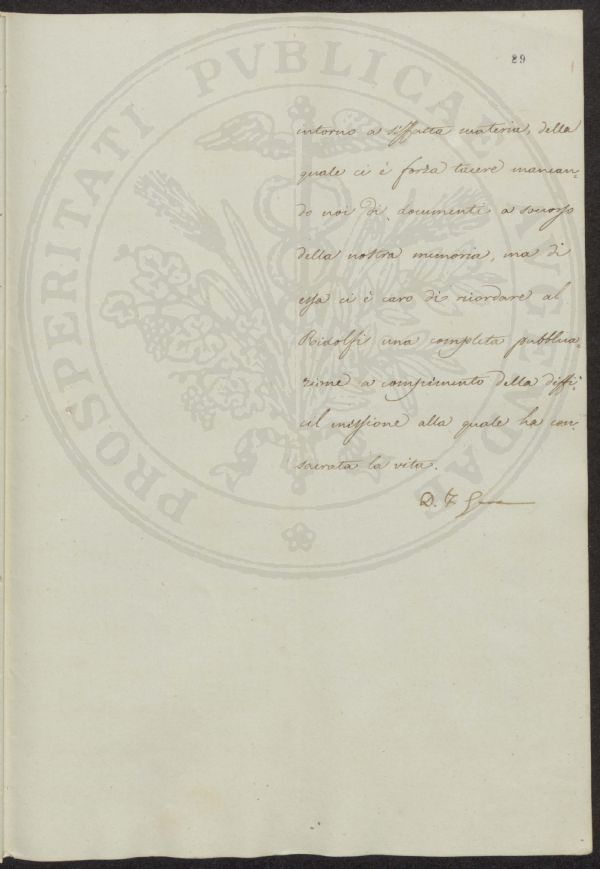 29
intorno a siffatta materia, della
quale ci è forza tacere mancan=
do noi di documenti a soccorso
della nostra memoria, ma di
essa ci è caro di ricordare al
Ridolfi una completa pubblica=
zione a compimento della diffi=
cil missione alla quale ha con=
sacrata la vita.
D. F.
PROSPERITATI PVBLICAE AVGENDAE